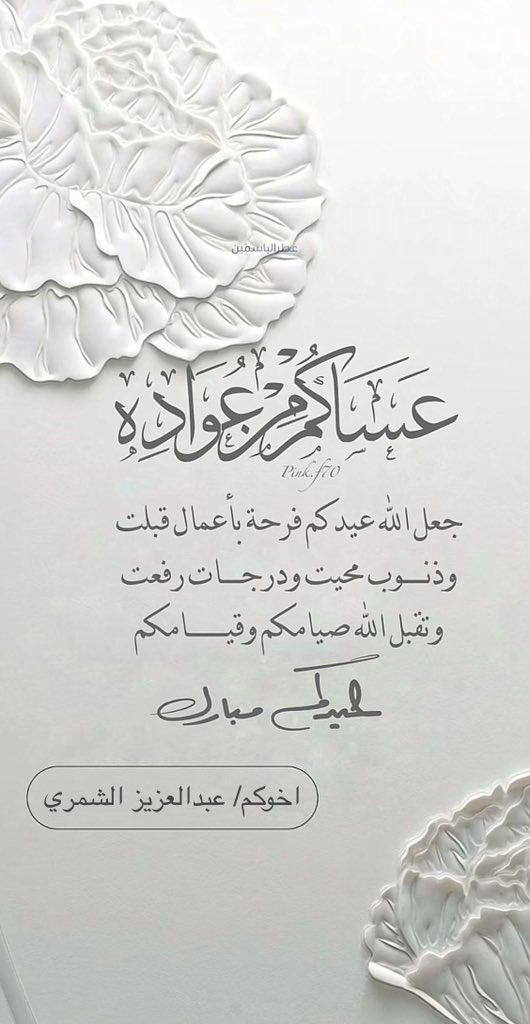 عطرالياسمين
عَسَاكُم مِّن عُوَادِه
Pink.f70
جعل الله عيدكم فرحة بأعمال قبلت
وذنوب محيت ودرجات رفعت
وتقبل الله صيامكم وقيامكم
عيدكم مبارك
اخوكم/ عبدالعزيز الشمري